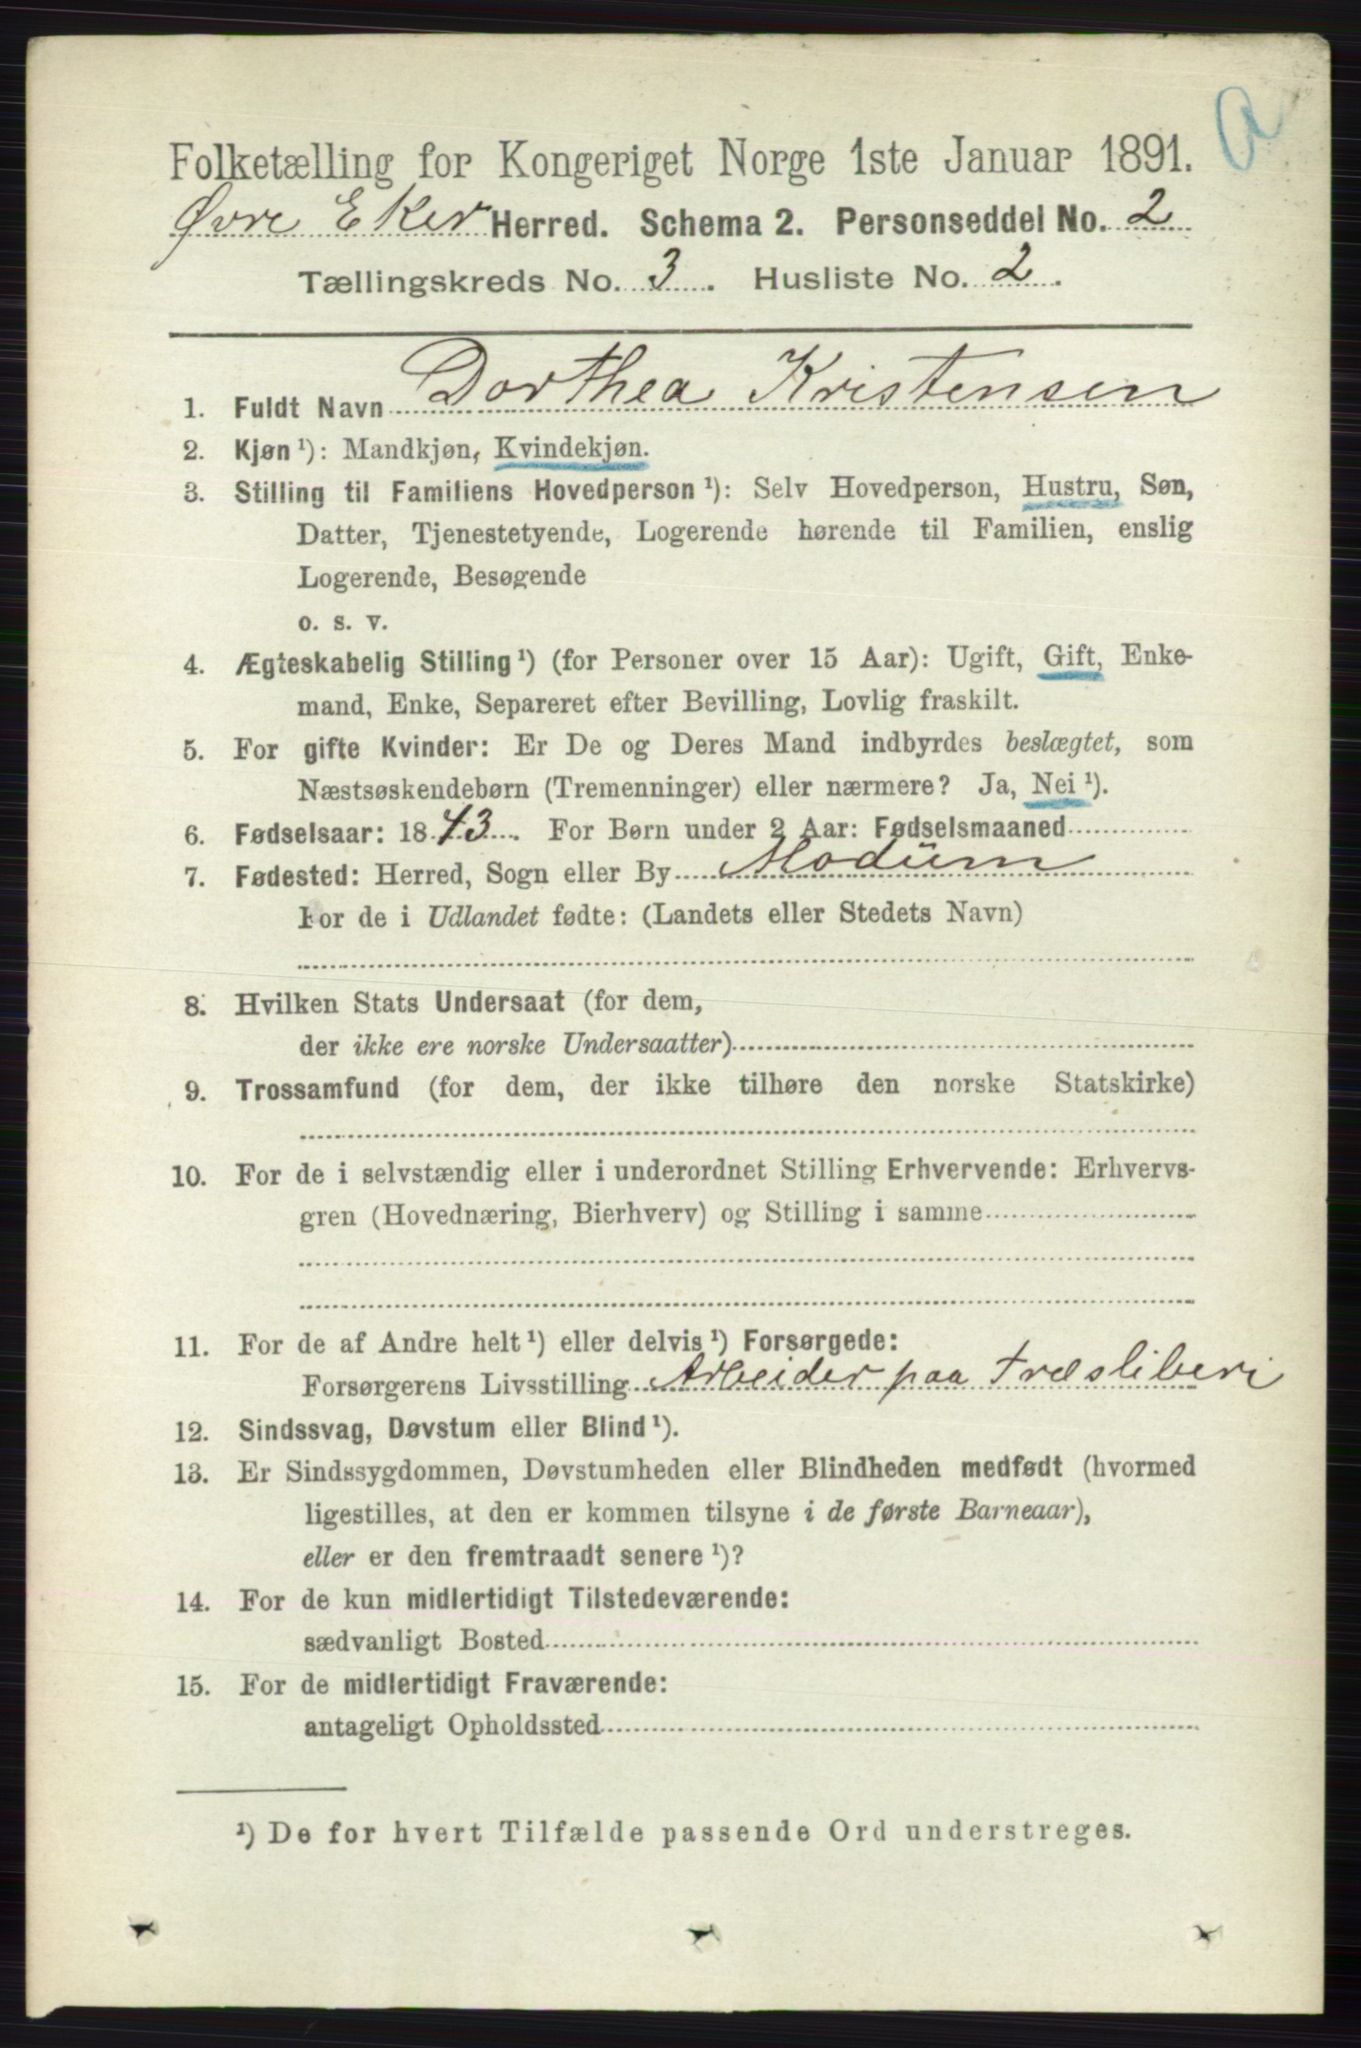 a
Folketælling for Kongeriget Norge 1ste Januar 1891.
Øvre Eker Herred. Schema 2. Personseddel No. 2
Tællingskreds No. 3. Husliste No. 2.
1. Fuldt Navn Dorthea Kristensen
2. Kjøn ¹): Mandkjøn, Kvindekjøn.
3. Stilling til Familiens Hovedperson ¹): Selv Hovedperson, Hustru, Søn,
Datter, Tjenestetyende, Logerende hørende til Familien, enslig
Logerende, Besøgende
o. s. v.
4. Ægteskabelig Stilling ¹) (for Personer over 15 Aar): Ugift, Gift, Enke-
mand, Enke, Separeret efter Bevilling, Lovlig fraskilt.
5. For gifte Kvinder: Er De og Deres Mand indbyrdes beslægtet, som
Næstsøskendebørn (Tremenninger) eller nærmere? Ja, Nei ¹).
6. Fødselsaar: 1843. For Børn under 2 Aar: Fødselsmaaned
7. Fødested: Herred, Sogn eller By Modum
For de i Udlandet fødte: (Landets eller Stedets Navn)
8. Hvilken Stats Undersaat (for dem,
der ikke ere norske Undersaatter)
9. Trossamfund (for dem, der ikke tilhøre den norske Statskirke)
10. For de i selvstændig eller i underordnet Stilling Erhvervende: Erhvervs-
gren (Hovednæring, Bierhverv) og Stilling i samme
11. For de af Andre helt ¹) eller delvis ¹) Forsørgede:
Forsørgerens Livsstilling Arbeider paa træsliberi
12. Sindssvag, Døvstum eller Blind ¹).
13. Er Sindssygdommen, Døvstumheden eller Blindheden medfødt (hvormed
ligestilles, at den er kommen tilsyne i de første Barneaar),
eller er den fremtraadt senere ¹)?
14. For de kun midlertidigt Tilstedeværende:
sædvanligt Bosted
15. For de midlertidigt Fraværende:
antageligt Opholdssted
¹) De for hvert Tilfælde passende Ord understreges.